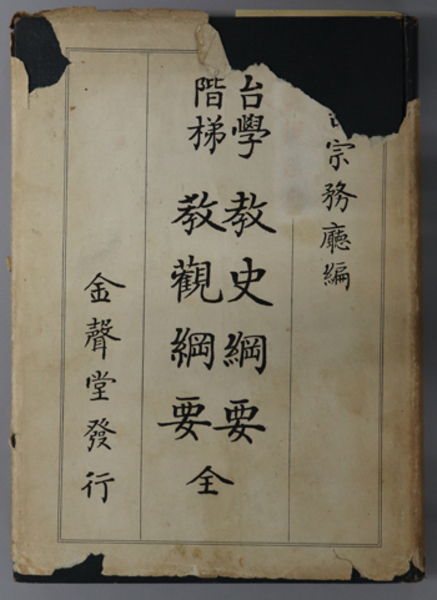 宗務廳編
台學 教史綱要
階梯 教觀綱要
全
金聲堂發行